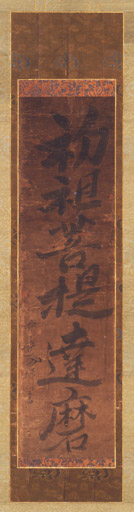 初祖菩提達磨